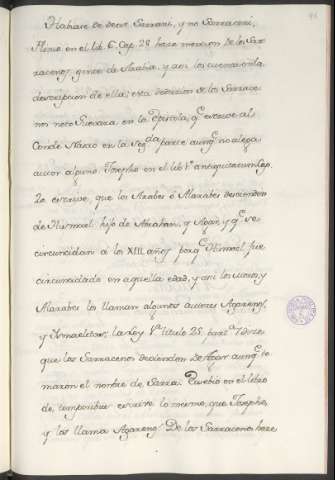 Habiase de decir Sarrani, y no Sarraceni,
Plinio en el lib. 6. Cap. 28 haze mencion de los Sar
racenos, gente de Arabia, y asi los cuenta en la
descripcion de ella; esta dedicion de los Sarrace
nos noto Guevara, en la Epistola, q.e escrive al
Conde Nasao en la seg.da parte aunq.e no alega
autor alguno. Josepho en el lib. 1.o antiquitatum Cap.
2o escrive, que los Arabes ó Alarabes descienden
de Hismael hijo de Abrahan, y Agar, y q.e se
circuncidan á los XIII. años porq.e Hismael fue
circuncidado en aquella edad, y asi los
Alarabes los llaman algunos autores Agarenos,
y Ismaelitas; la Ley 1.a titulo 25. part.a 7 dize
que los Sarracenos decienden de Agar aunq.e to
maron el nombre de Sarra. Eusebio en el libro
de temporibus escrive lo mesmo, que Josepho,
y los llama Agarenos. De los Sarracenos haze